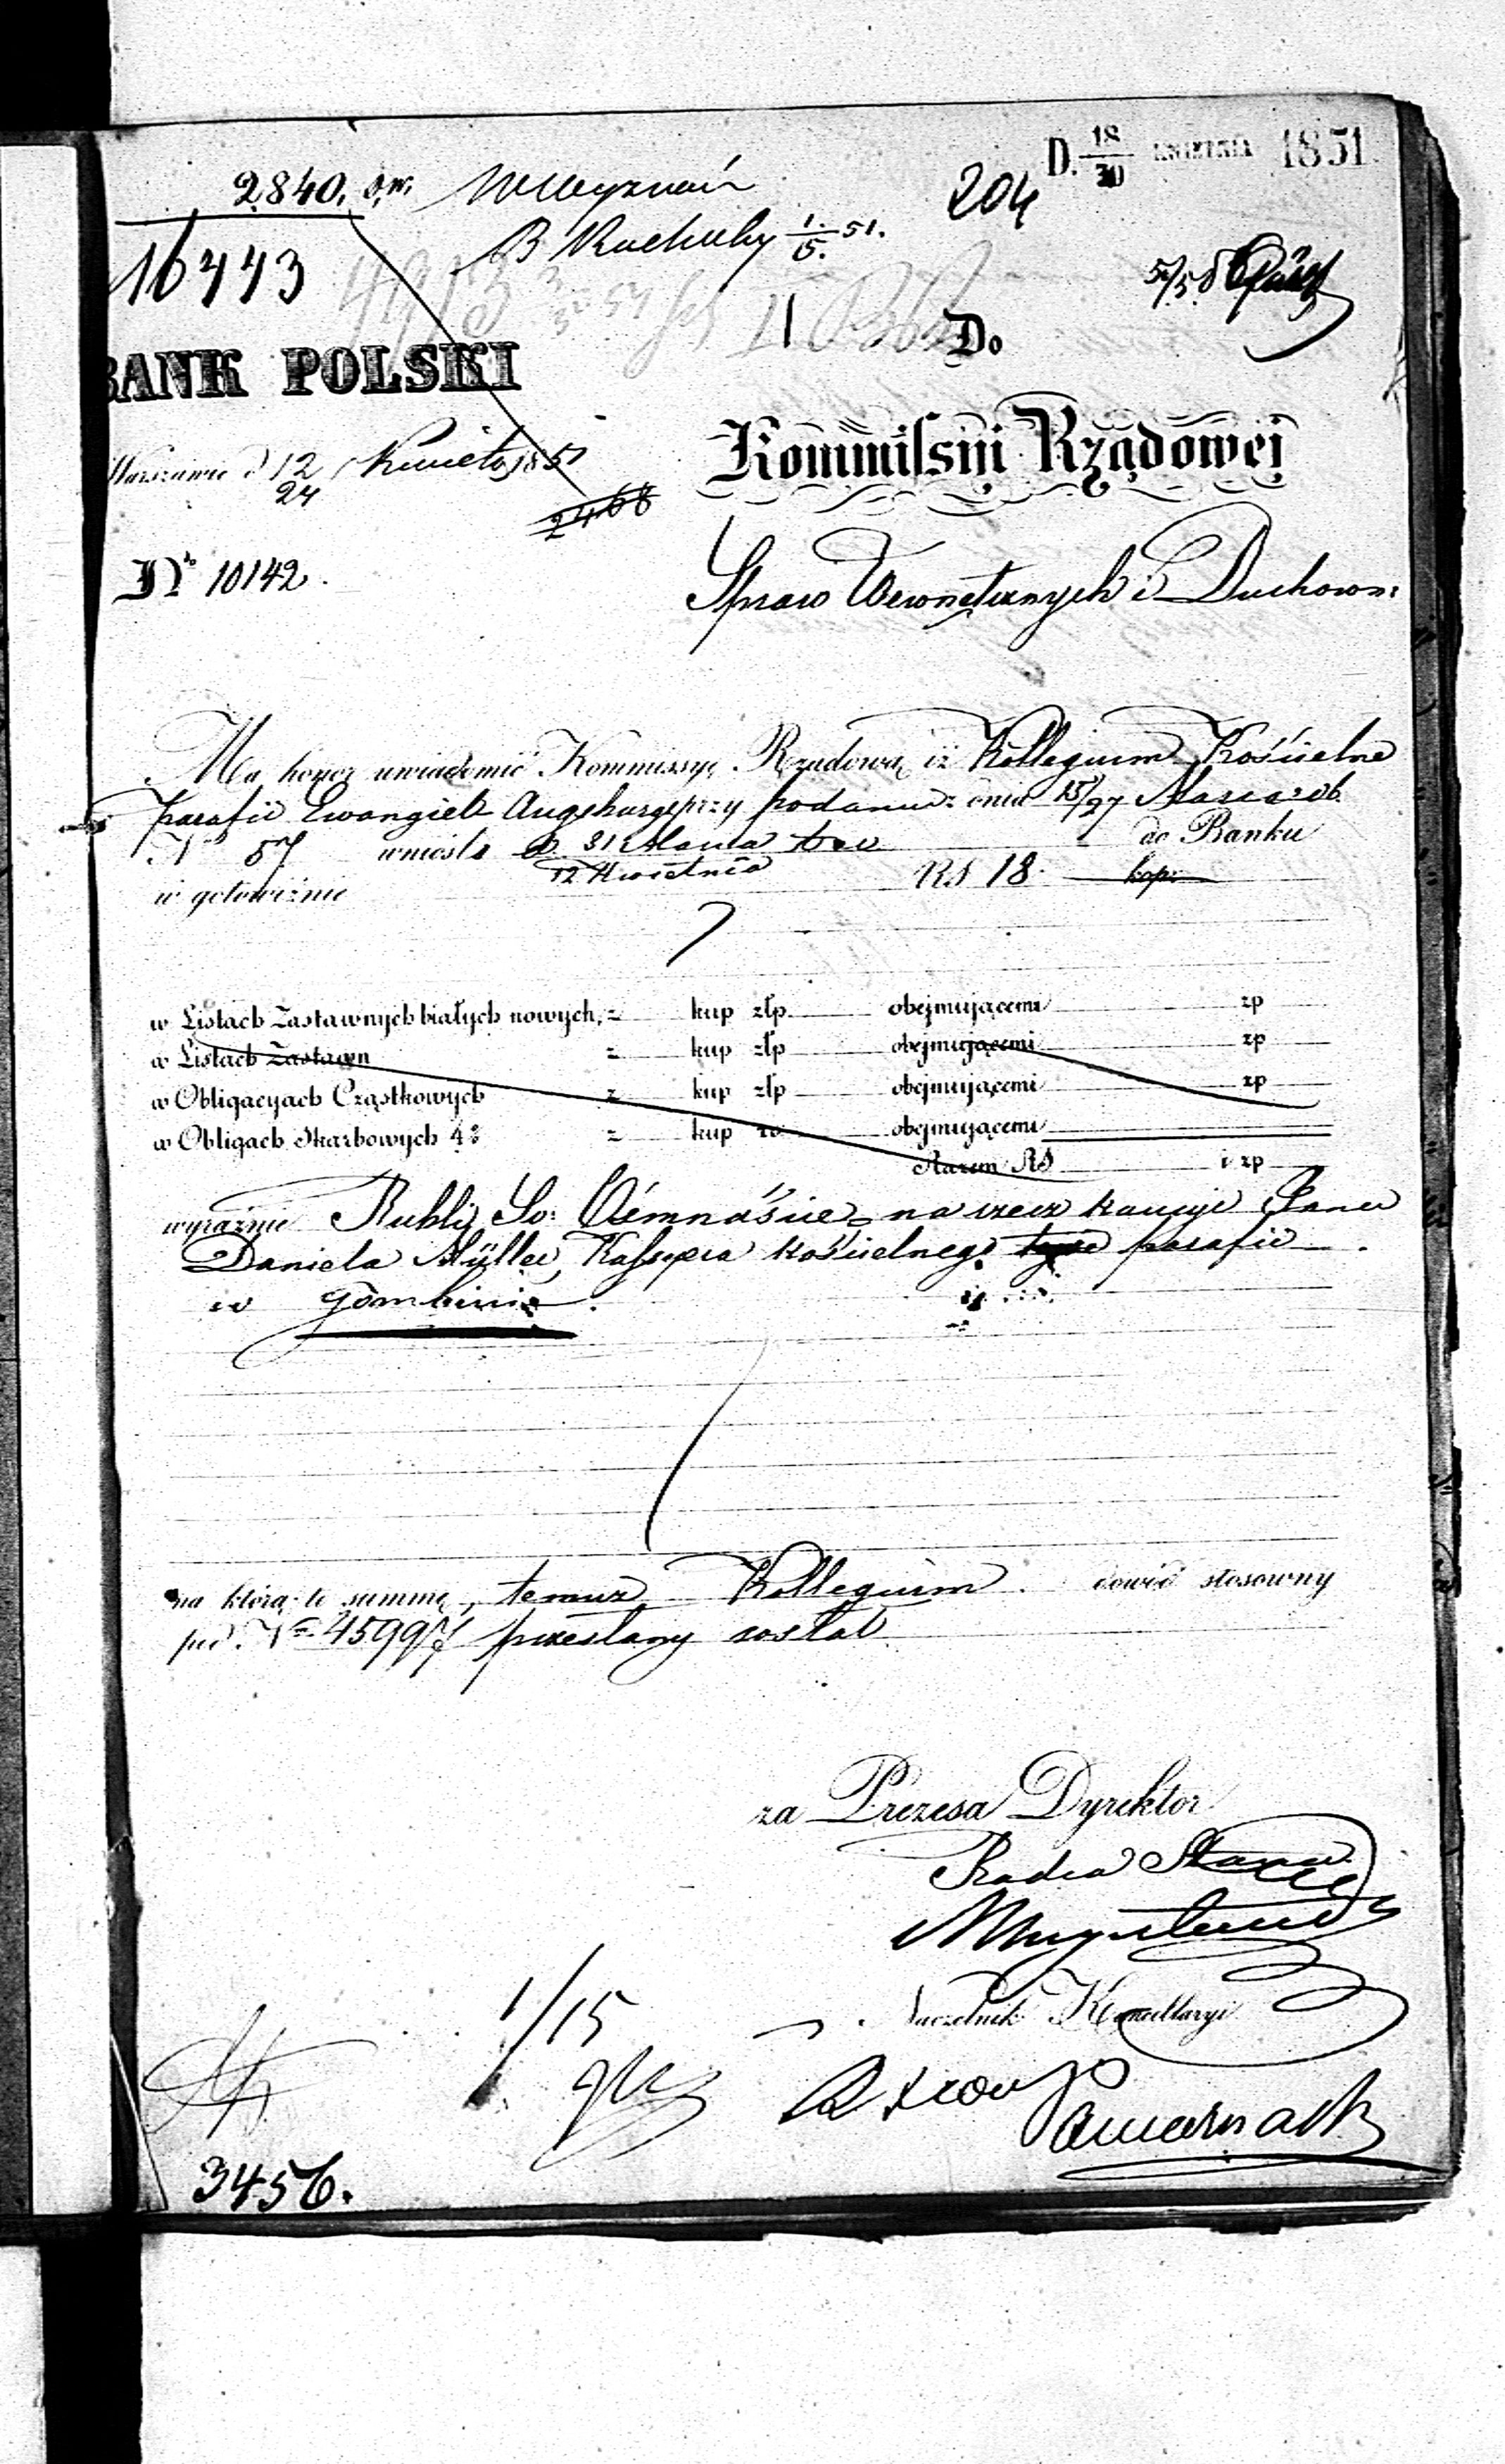 D. 18/30 KWIETNIA 1851
2840. 204
W Wyznań
B Kuchuby 1/5. 51.
16443
BANK POLSKI
Do
Warszawie d 12/24 Kwietn 1851
Kommissyi Rządowej
2468
Nr 10142.
Spraw Wewnętrznych i Duchown:
Ma honor uwiadomić Kommissyę Rządową iż Kollegium Kościelne
parafii Ewangiel Augsburg przy podaniu z dnia 15/27 Marca r b
No 57 wniosło d. 31 Marca/12 Kwietnia do Banku
w gotowiźnie RS 18 kop:
w Listach Zastawnych białych nowych, z kup złp obejmującemi zp
w Listach Zastawn z kup złp obejmującemi zp
w Obligacyach Cząstkowych z kup złp obejmującemi zp
w Obligach Skarbowych 4% z kup zp obejmującemi
Razem RS i zp
wyraźnie Rubli Sr: Ośmnaście na rzecz kaucyi Pana
Daniela Müller, Kassyera kościelnego parafii
w Gombinie.
na którą to summę, temuż Kollegium dowód stosowny
pod No 45997 przesłany został
za Prezesa Dyrektor
Radca Stanu
Naczelnik Kancellaryi
1/15
3456.